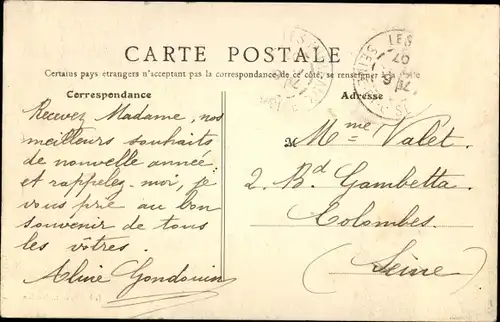 CARTE POSTALE
Certains pays étrangers n'acceptant pas la correspondance de ce côté, se renseigner
Correspondance
Adresse
Recevez Madame, nos
meilleurs souhaits
de nouvelle année
et rappelez-moi, je
vous prie au bon
souvenir de tous
les vôtres.
Aline Gondouin
M Mme Valet.
2. Bd Gambetta.
Colombes.
(Seine)
LES
LES
07